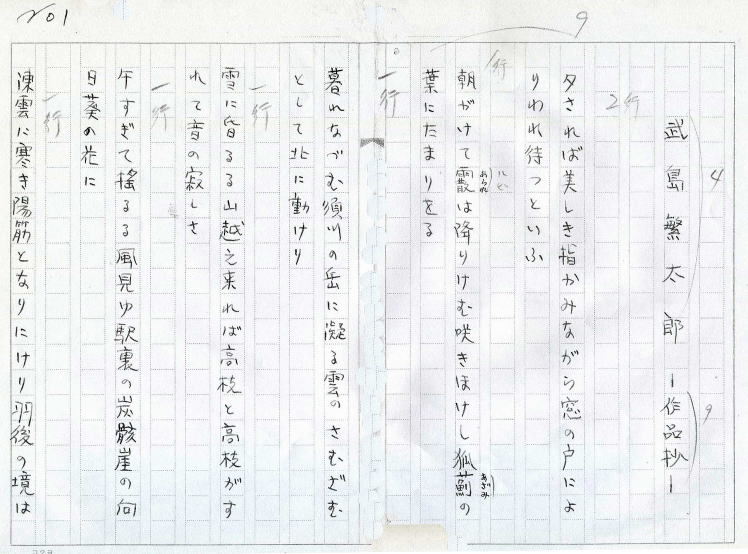 No1
9
武島繁太郎 ー作品抄ー
4
9
2行
夕されば美しき指かみながら窓の戸によ
りわれ待つといふ
1行
朝がけて霰は降りけむ咲きほけし狐薊の
あられ
ルビ
あざみ
葉にたまりをる
一行
暮れなづむ須川の岳に凝る雲のさむざむ
として北に動けり
一行
雪に昏るる山越え来れば高枝と高枝がす
れて音の寂しさ
一行
午すぎて搖るる風見ゆ駅裏の炭骸崖の向
日葵の花に
一行
凍雲に寒き陽筋となりにけり羽後の境は